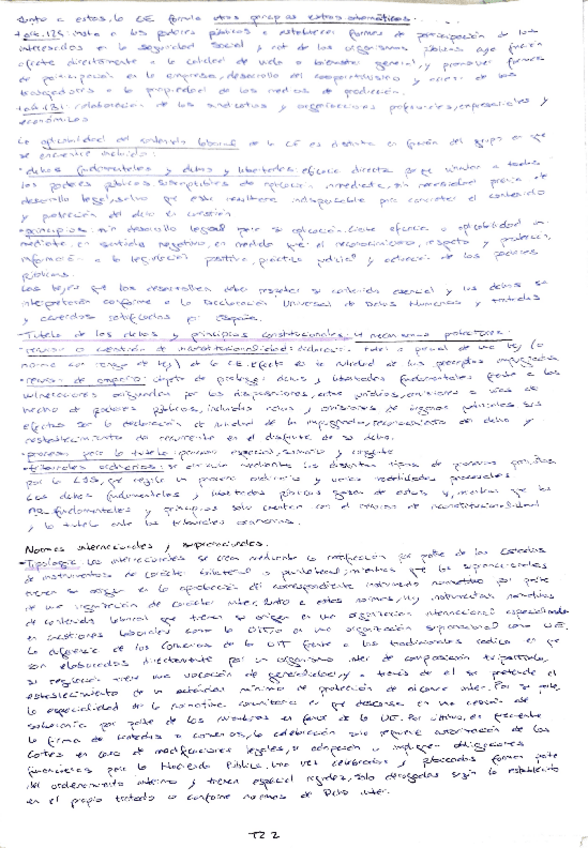 Junto a estos, la CE formula otros principios extras sistemáticos.
+ art. 129: insta a los poderes públicos a establecer formas de participación de los
interesados en la seguridad social y act de los organismos públicos cuya función
afecte directamente a la calidad de vida o bienestar general, y promover formas
de participación en la empresa, desarrollo del cooperativismo y acceso de los
trabajadores a la propiedad de los medios de producción.
+ art. 131: colaboración de los sindicatos y organizaciones profesionales, empresariales y
económicos
La aplicabilidad del contenido laboral de la CE es distinta en función del grupo en que
se encuentre incluido:
· dchos fundamentales y dchos y libertades: eficacia directa pq vinculan a todos
los poderes públicos susceptibles de aplicación inmediata, sin necesidad previa de
desarrollo legal, salvo que este resultare indispensable para concretar el contenido
y protección del dcho en cuestión
· principios: sin desarrollo legal para su aplicación. tiene eficacia o aplicabilidad
mediata, en sentido negativo, en medida que el reconocimiento, respeto y protección,
información a la legislación positiva, práctica judicial y actuación de los poderes
públicos.
Las leyes que los desarrollen debe respetar su contenido esencial y los dchos se
interpretarán conforme a la Declaración Universal de Dchos Humanos y tratados
y acuerdos ratificados por España.
- Tutela de los dchos y principios constitucionales: mecanismos protectores:
· recurso o cuestión de inconstitucionalidad: total o parcial de una ley (o
norma con rango de ley) a la CE. efecto es la nulidad de los preceptos impugnados
· recurso de amparo: objeto de proteger dchos y libertades fundamentales frente a las
vulneraciones originadas por las disposiciones, actos jurídicos, omisiones o vías de
hecho de poderes públicos, incluidos actos y omisiones de órganos judiciales. sus
efectos son la declaración de nulidad de lo impugnado, reconocimiento del dcho y
restablecimiento del recurrente en el disfrute de su dcho.
· procesos para la tutela: proceso especial, sumario y urgente
· tribunales ordinarios: se articula mediante los distintos tipos de procesos previstos
por la LJS, que regula un proceso ordinario y varias modalidades procesales
Los dchos fundamentales y libertades públicas gozan de estos y, mientras que los
no fundamentales y principios solo cuentan con el recurso de inconstitucionalidad
y la tutela ante los tribunales ordinarios.
Normas internacionales y supranacionales.
- Tipología: Las internacionales se crean mediante la ratificación por parte de los estados
de instrumentos de carácter bilateral o plurilateral; mientras que las supranacionales
tienen su origen en la aprobación del correspondiente instrumento normativo por parte
de una organización de carácter inter. Junto a estas normas, hay instrumentos normativos
de contenido laboral que tienen su origen en una organización internacional especializada
en cuestiones laborales como la OIT, o en una organización supranacional como UE.
La diferencia de los Convenios de la OIT frente a los tradicionales radica en que
son elaborados directamente por un organismo inter de composición tripartita,
su regulación tiene una vocación de generalidad, y a través de él se pretende el
establecimiento de un estándar mínimo de protección de alcance inter. Por su parte,
la especialidad de la normativa comunitaria es que descansa en una cesión de
soberanía por parte de los miembros en favor de la UE. Por último, es frecuente
la firma de tratados o convenios, la celebración solo requiere autorización de las
Cortes en caso de modificaciones legales, su adopción o impliquen obligaciones
financieras para la Hacienda Pública. Una vez celebrados y publicados forman parte
del ordenamiento interno y tienen especial rigidez, solo derogadas según lo establecido
en el propio tratado o conforme normas de Dcho inter.
T2 2